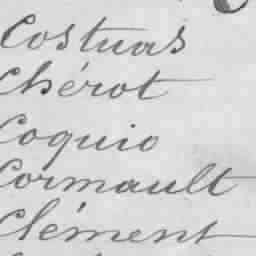 Costuas
Chérot
Coquio
Cormault
Clément